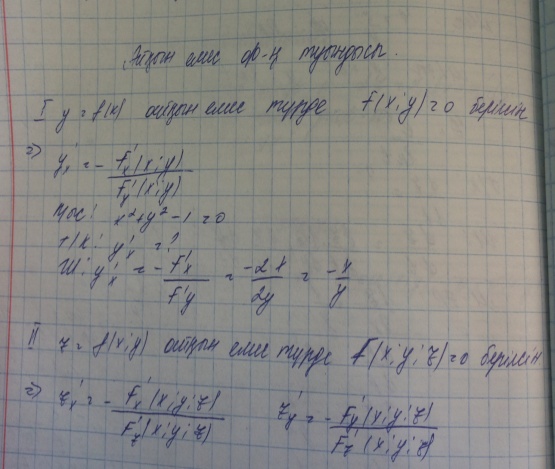 Айқын емес ф-ң туындысы.
I y = f(x) айқын емес түрде F(x;y)=0 берілсін
=> y'ₓ = - F'ₓ(x;y) / F'ᵧ(x;y)
x²+y²-1=0
т/к: y'ₓ = ?
Ш: y'ₓ = - F'x / F'y = -2x / 2y = -x / y
II z = f(x;y) айқын емес түрде F(x;y;z)=0 берілсін
=> z'x = - F'x(x;y;z) / F'z(x;y;z) z'y = - F'y(x;y;z) / F'z(x;y;z)